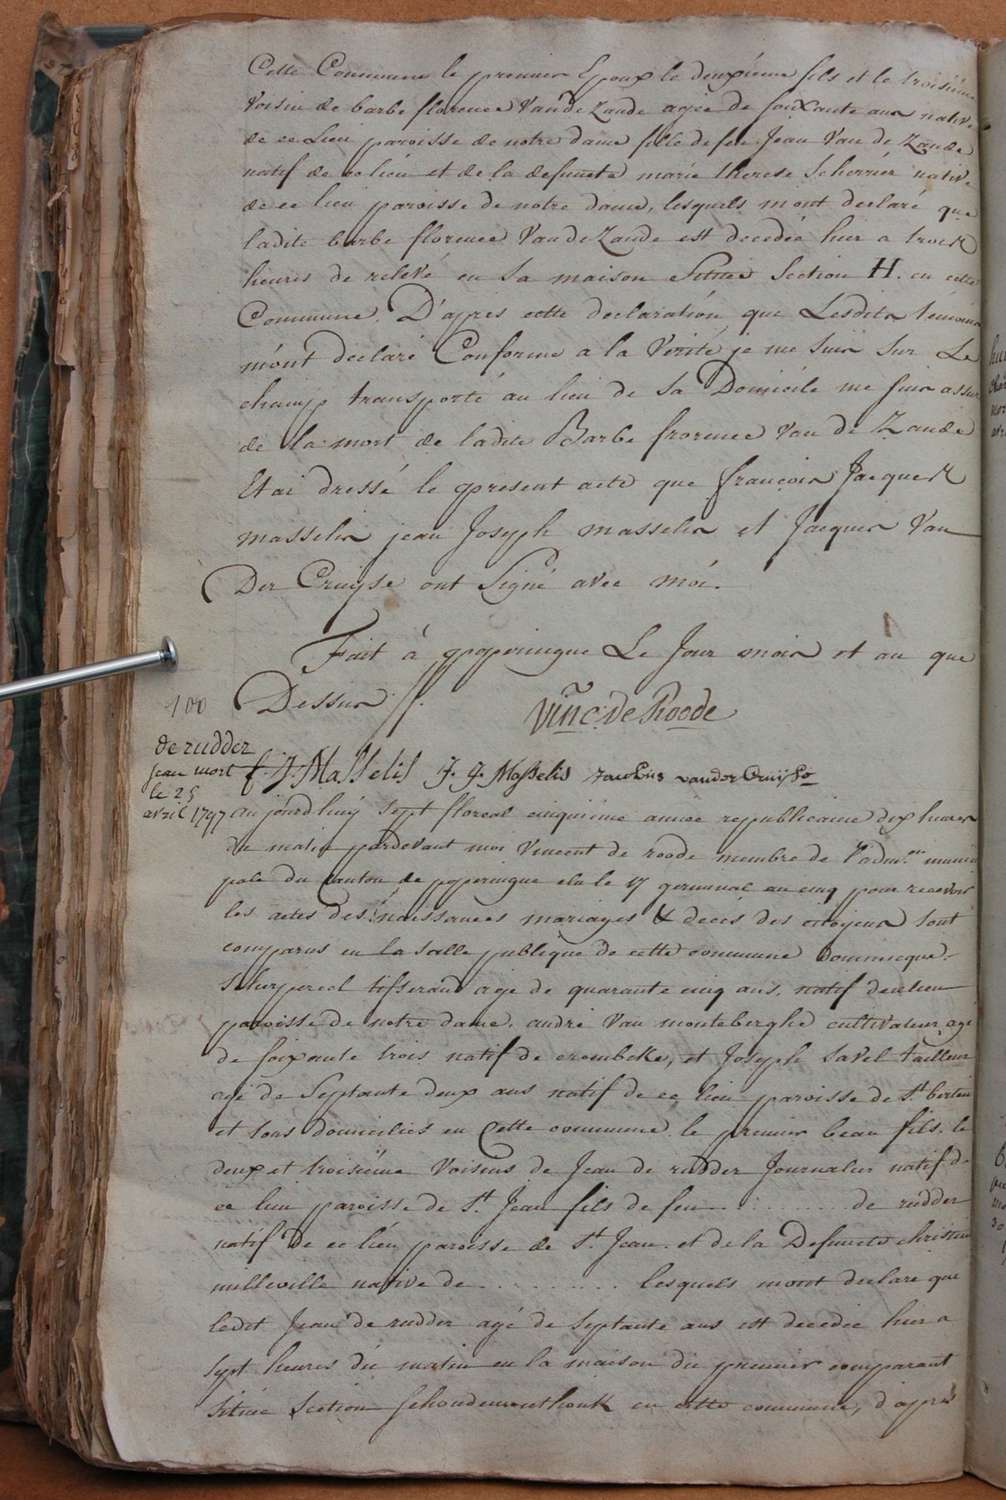 Cette Commune le premier Epoux le deuxiéme fils et le troisiéme
voisin de barbe florence Van de Zande agée de soixante ans native
de ce Lieu paroisse de notre dame fille de feu Jean Van de Zande
natif de ce lieu et de la defuncte marie therese Scherrier native
de ce lieu paroisse de notre dame, lesquels m'ont declaré que
ladite barbe florence Van de Zande est decedée hier a trois
heures de relevé en sa maison Sittuée Section H. en cette
Commune. D'apres cette declaration que Lesdits témoins
m'ont declaré Conforme a la Verité je me suis sur Le
champ transporté au lieu de sa Domicile me suis assuré
de la mort de ladite Barbe frorence Van de Zande
Et ai dressé le present acte que françois Jacques
masselis jean Joseph masselis et Jacques Van
Der Cruyse ont Signé avec moi.
Fait à poperingue Le Jour mois et an que
100 Dessus //.
Vinc. de Roode
de rudder
jean mort
le 25
avril 1797
f. J. Masselis J. J. Masselis Jacobus vander Cruysse
aujourd'huij sept floreal cinquiéme année republicaine dix heures
du matin pardevant moi Vincent de roode membre de l'adm.on munici
pale du Canton de poperingue elu le 17 germinal an cinq pour recevoir
les actes des naissances mariages & decés des citoyens sont
comparus en la salle publique de cette commune Dominique
Scherpereel tisserand age de quarante cinq ans, natif de ce lieu
paroisse de notre dame, andré Van monteberghe cultivateur age
de soixante trois natif de crombeke, et Joseph Savel tailleur
agé de Septante deux ans natif de ce lieu paroisse de St. bertin
et tous domiciliés en Cette commune le premier beau fils le
deux et troisiéme Voisins de Jean de rudder Journalier natif de
ce lieu paroisse de St. Jean fils de feu ........ de rudder
natif de ce lieu paroisse de St. Jean et de la Defuncte christine
milleville native de .......... lesquels m'ont declaré que
ledit Jean de rudder agé de septante ans est decedée hier a
sept heures du matin en la maison du premier comparant
Située Section Schoudemonthouk en cette commune, d'apres